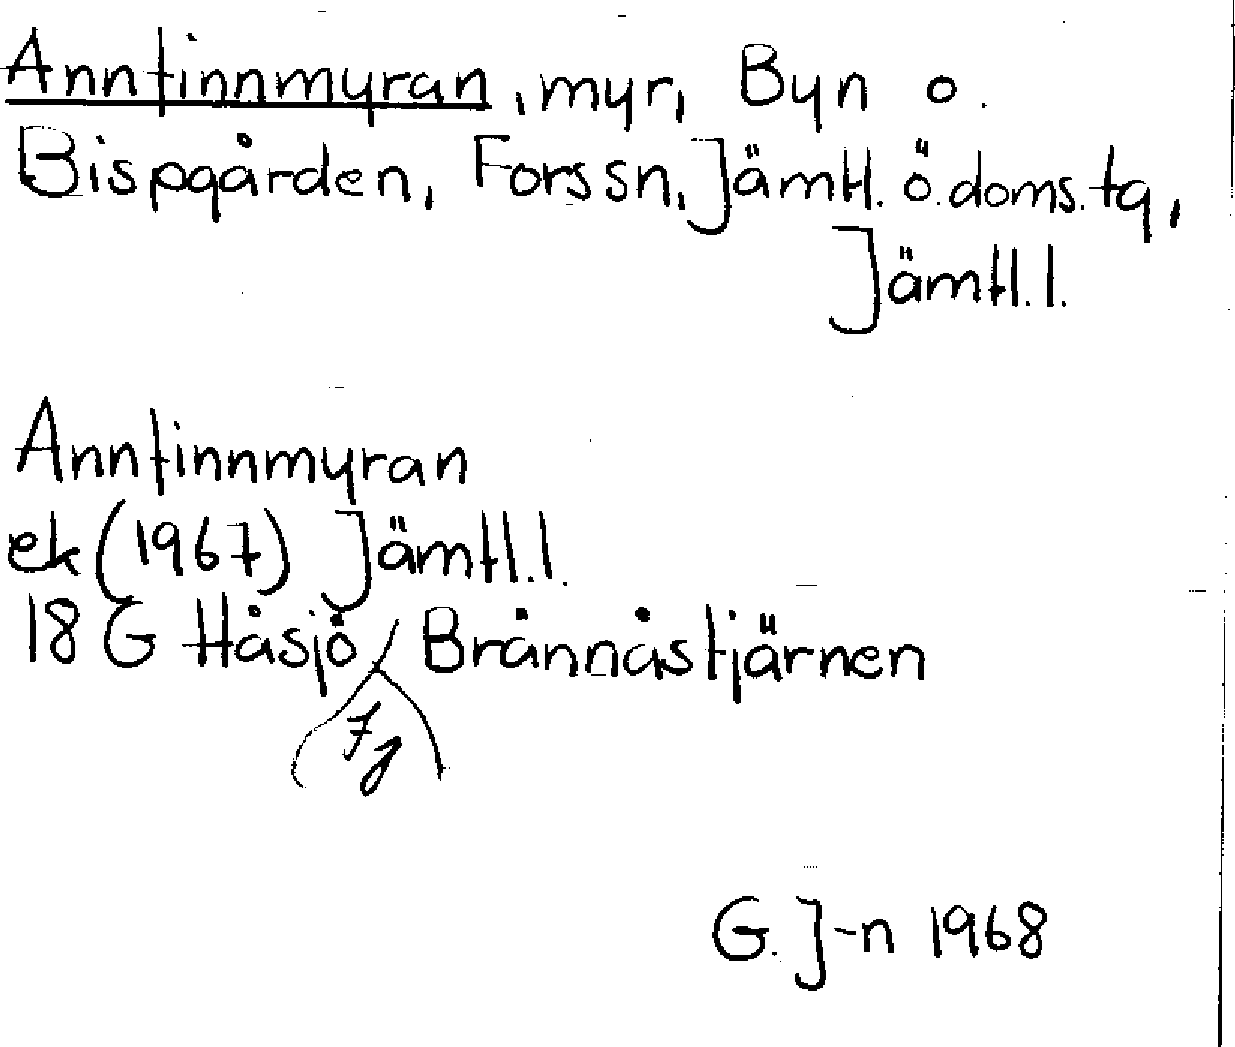 Anntinnmyran, myr, Byn o.
Bispgården, Fors sn, Jämtl. ö. doms. tg,
Jämtl. l.
Anntinnmyran
ek (1967) Jämtl. l.
18 G Håsjö / Brännåstjärnen
7g
G. J-n 1968